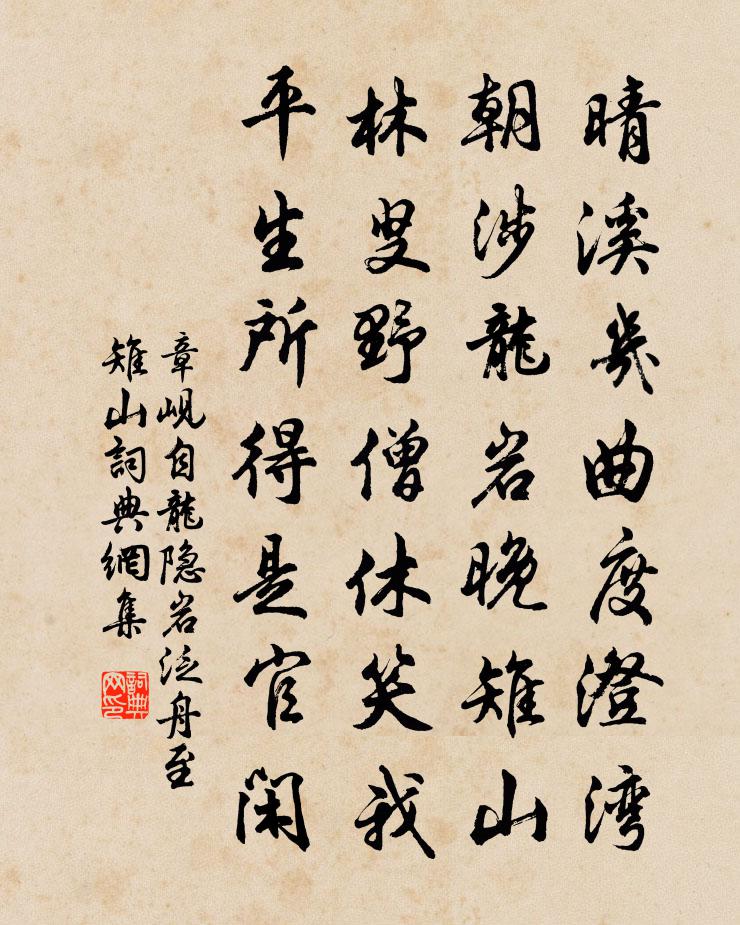 晴溪幾曲度澄湾
朝涉龍岩晚雉山
林叟野僧休笑我
平生所得是官閑
章岘自龍隐岩泛舟至
雉山詞典網集
詞典網印